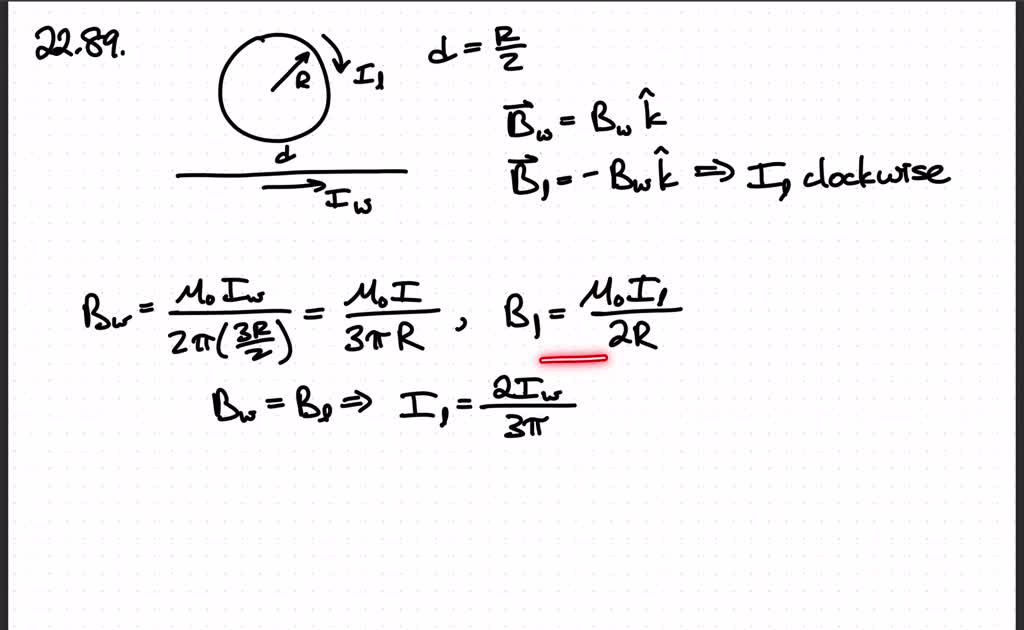 22.89.
R
I_l
d = R/2
d
I_w
B⃗_w = B_w k̂
B⃗_l = -B_w k̂ ⇒ I_l clockwise
B_w = μ₀I_w / 2π(3R/2) = μ₀I / 3πR , B_l = μ₀I_l / 2R
B_w = B_l ⇒ I_l = 2I_w / 3π